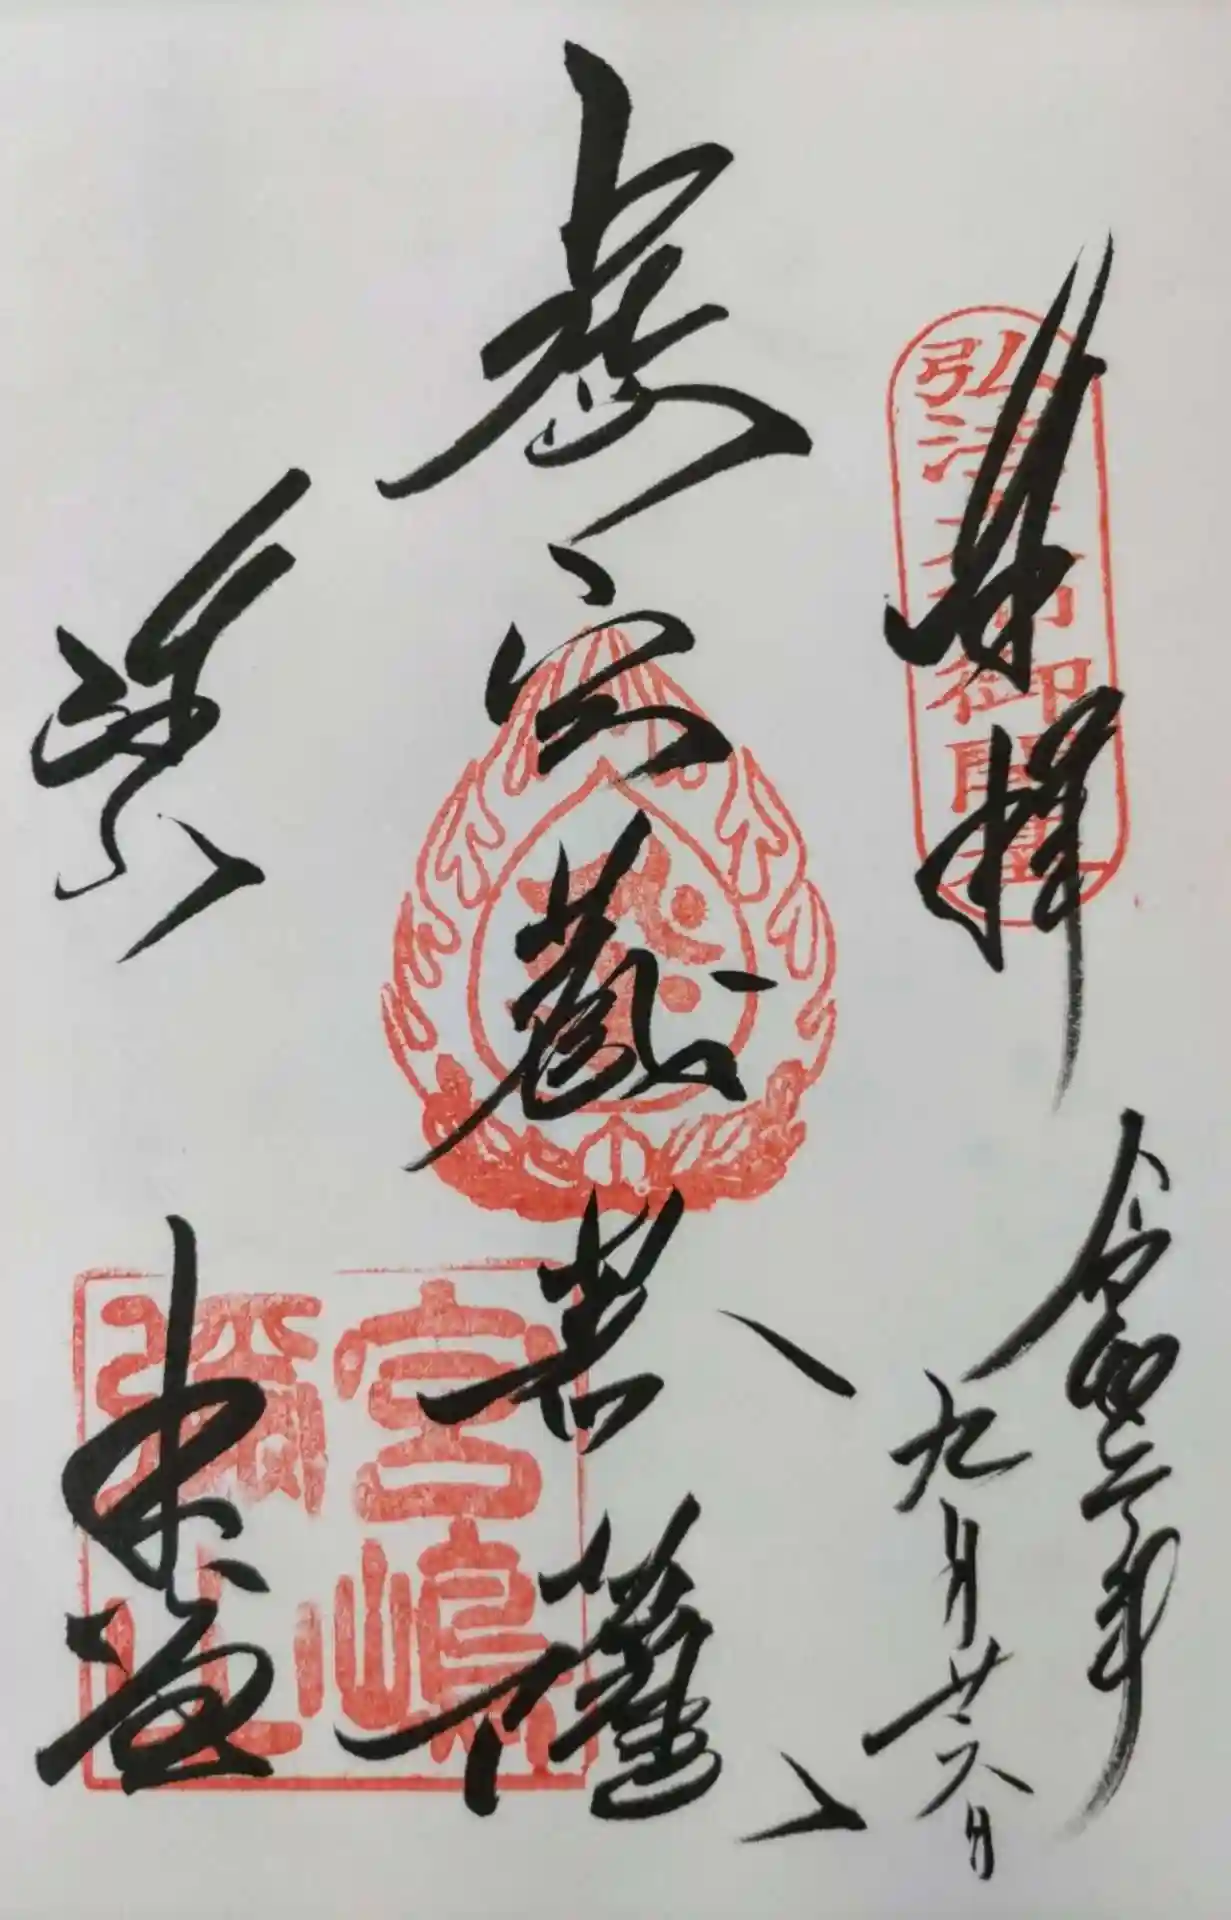 奉拝
弘法大師御開基
令和三年
九月廿六日
虚空蔵菩薩
宮嶋
彌山
本堂